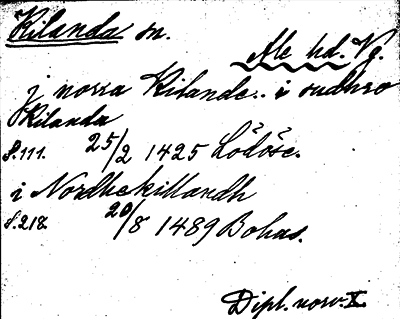 Kilanda sn.
Ale hd. Vg.
j norra Kilande.. i sudhro
Kilanda
S.111. 25/2 1425 Lödöse.
i Nordhekillandh
S.218. 20/8 1489 Bohus.
Dipl. norv. X.